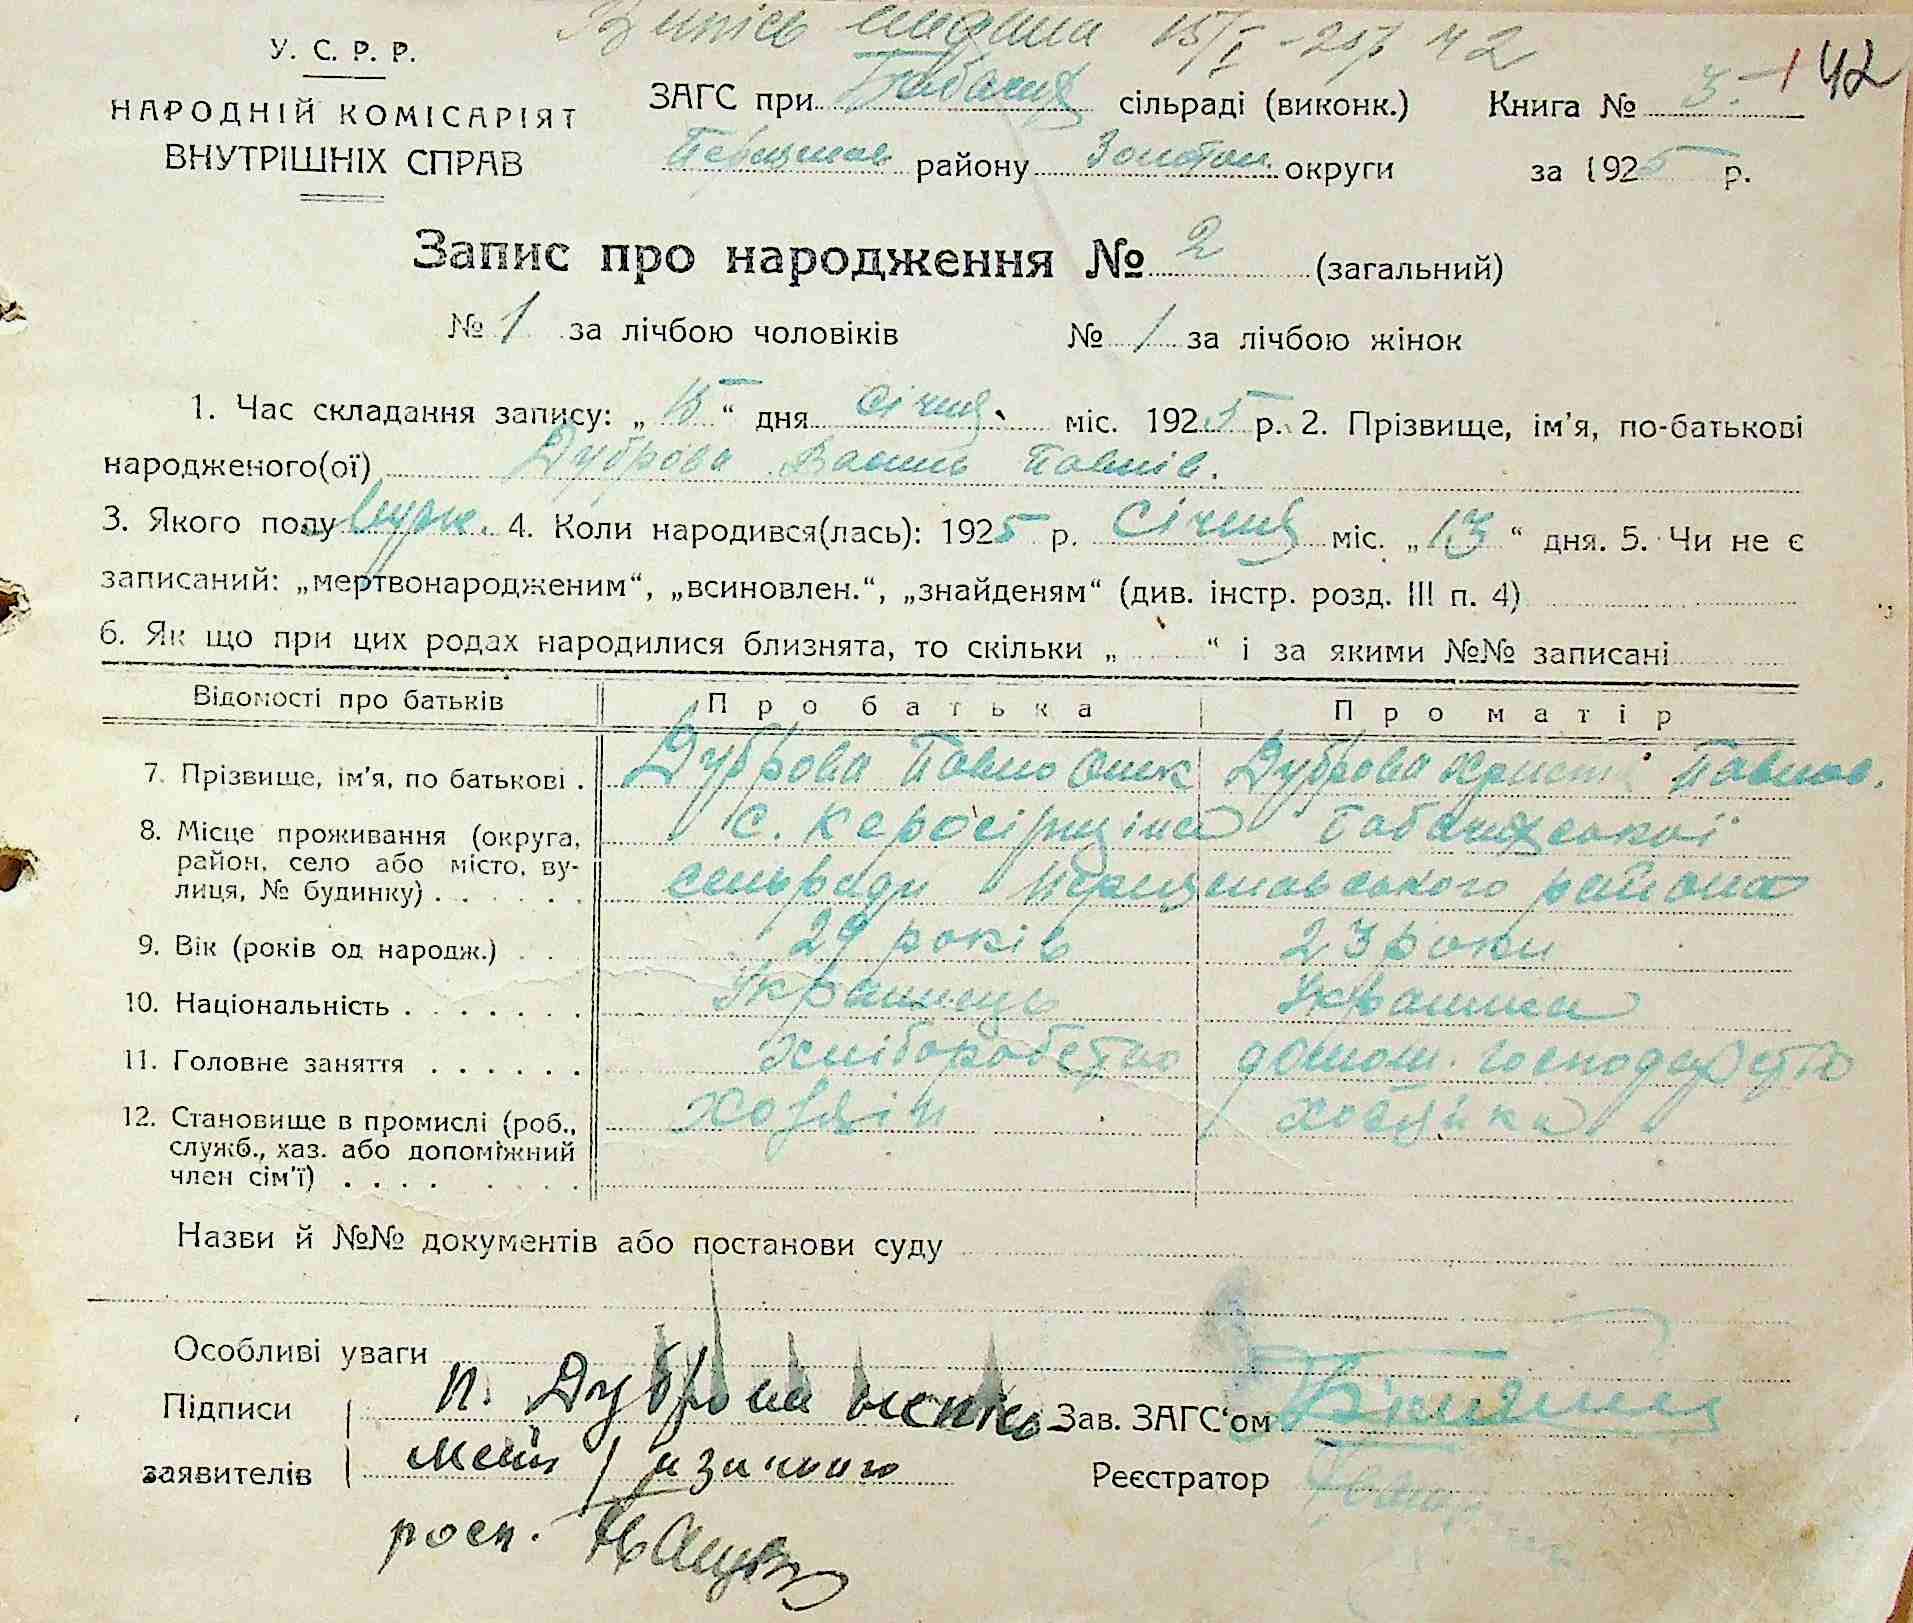 Випісь видана 15/I – 25 р 42
У. С. Р. Р.
НАРОДНІЙ КОМІСАРІЯТ
ВНУТРІШНІХ СПРАВ
ЗАГС при сільраді (виконк.) Книга № 3. 42
району Золотон. округи за 1925 р.
Запис про народження № 2 (загальний)
№ 1 за лічбою чоловіків № 1 за лічбою жінок
1. Час складання запису: „ 15 “ дня січня міс. 1925 р. 2. Прізвище, ім'я, по-батькові
народженого(ої) Дуброва Павлів.
3. Якого полу муж. 4. Коли народився(лась): 1925 р. Січня міс. „ 13 “ дня. 5. Чи не є
записаний: „мертвонародженим“, „всиновлен.“, „знайденям“ (див. інстр. розд. III п. 4)
6. Як що при цих родах народилися близнята, то скільки „ “ і за якими №№ записані
Відомості про батьків Про батька Про матір
7. Прізвище, ім'я, по батькові . Дуброва Павло Олек Дуброва Христя Павлов.
8. Місце проживання (округа, с.
район, село або місто, ву-
лиця, № будинку) . . . . . . района
9. Вік (років од народж.) . . 29 років 23 роки
10. Національність . . . . . . . Українець Українка
11. Головне заняття . . . . . . хліборобство домаш. господарство
12. Становище в промислі (роб., Хозяїн хозяйка
служб., хаз. або допоміжний
член сім'ї) . . . . . . . .
Назви й №№ документів або постанови суду
Особливі уваги
Підписи п. Дуброва Зав. ЗАГС'ом
заявителів Реєстратор
росп.